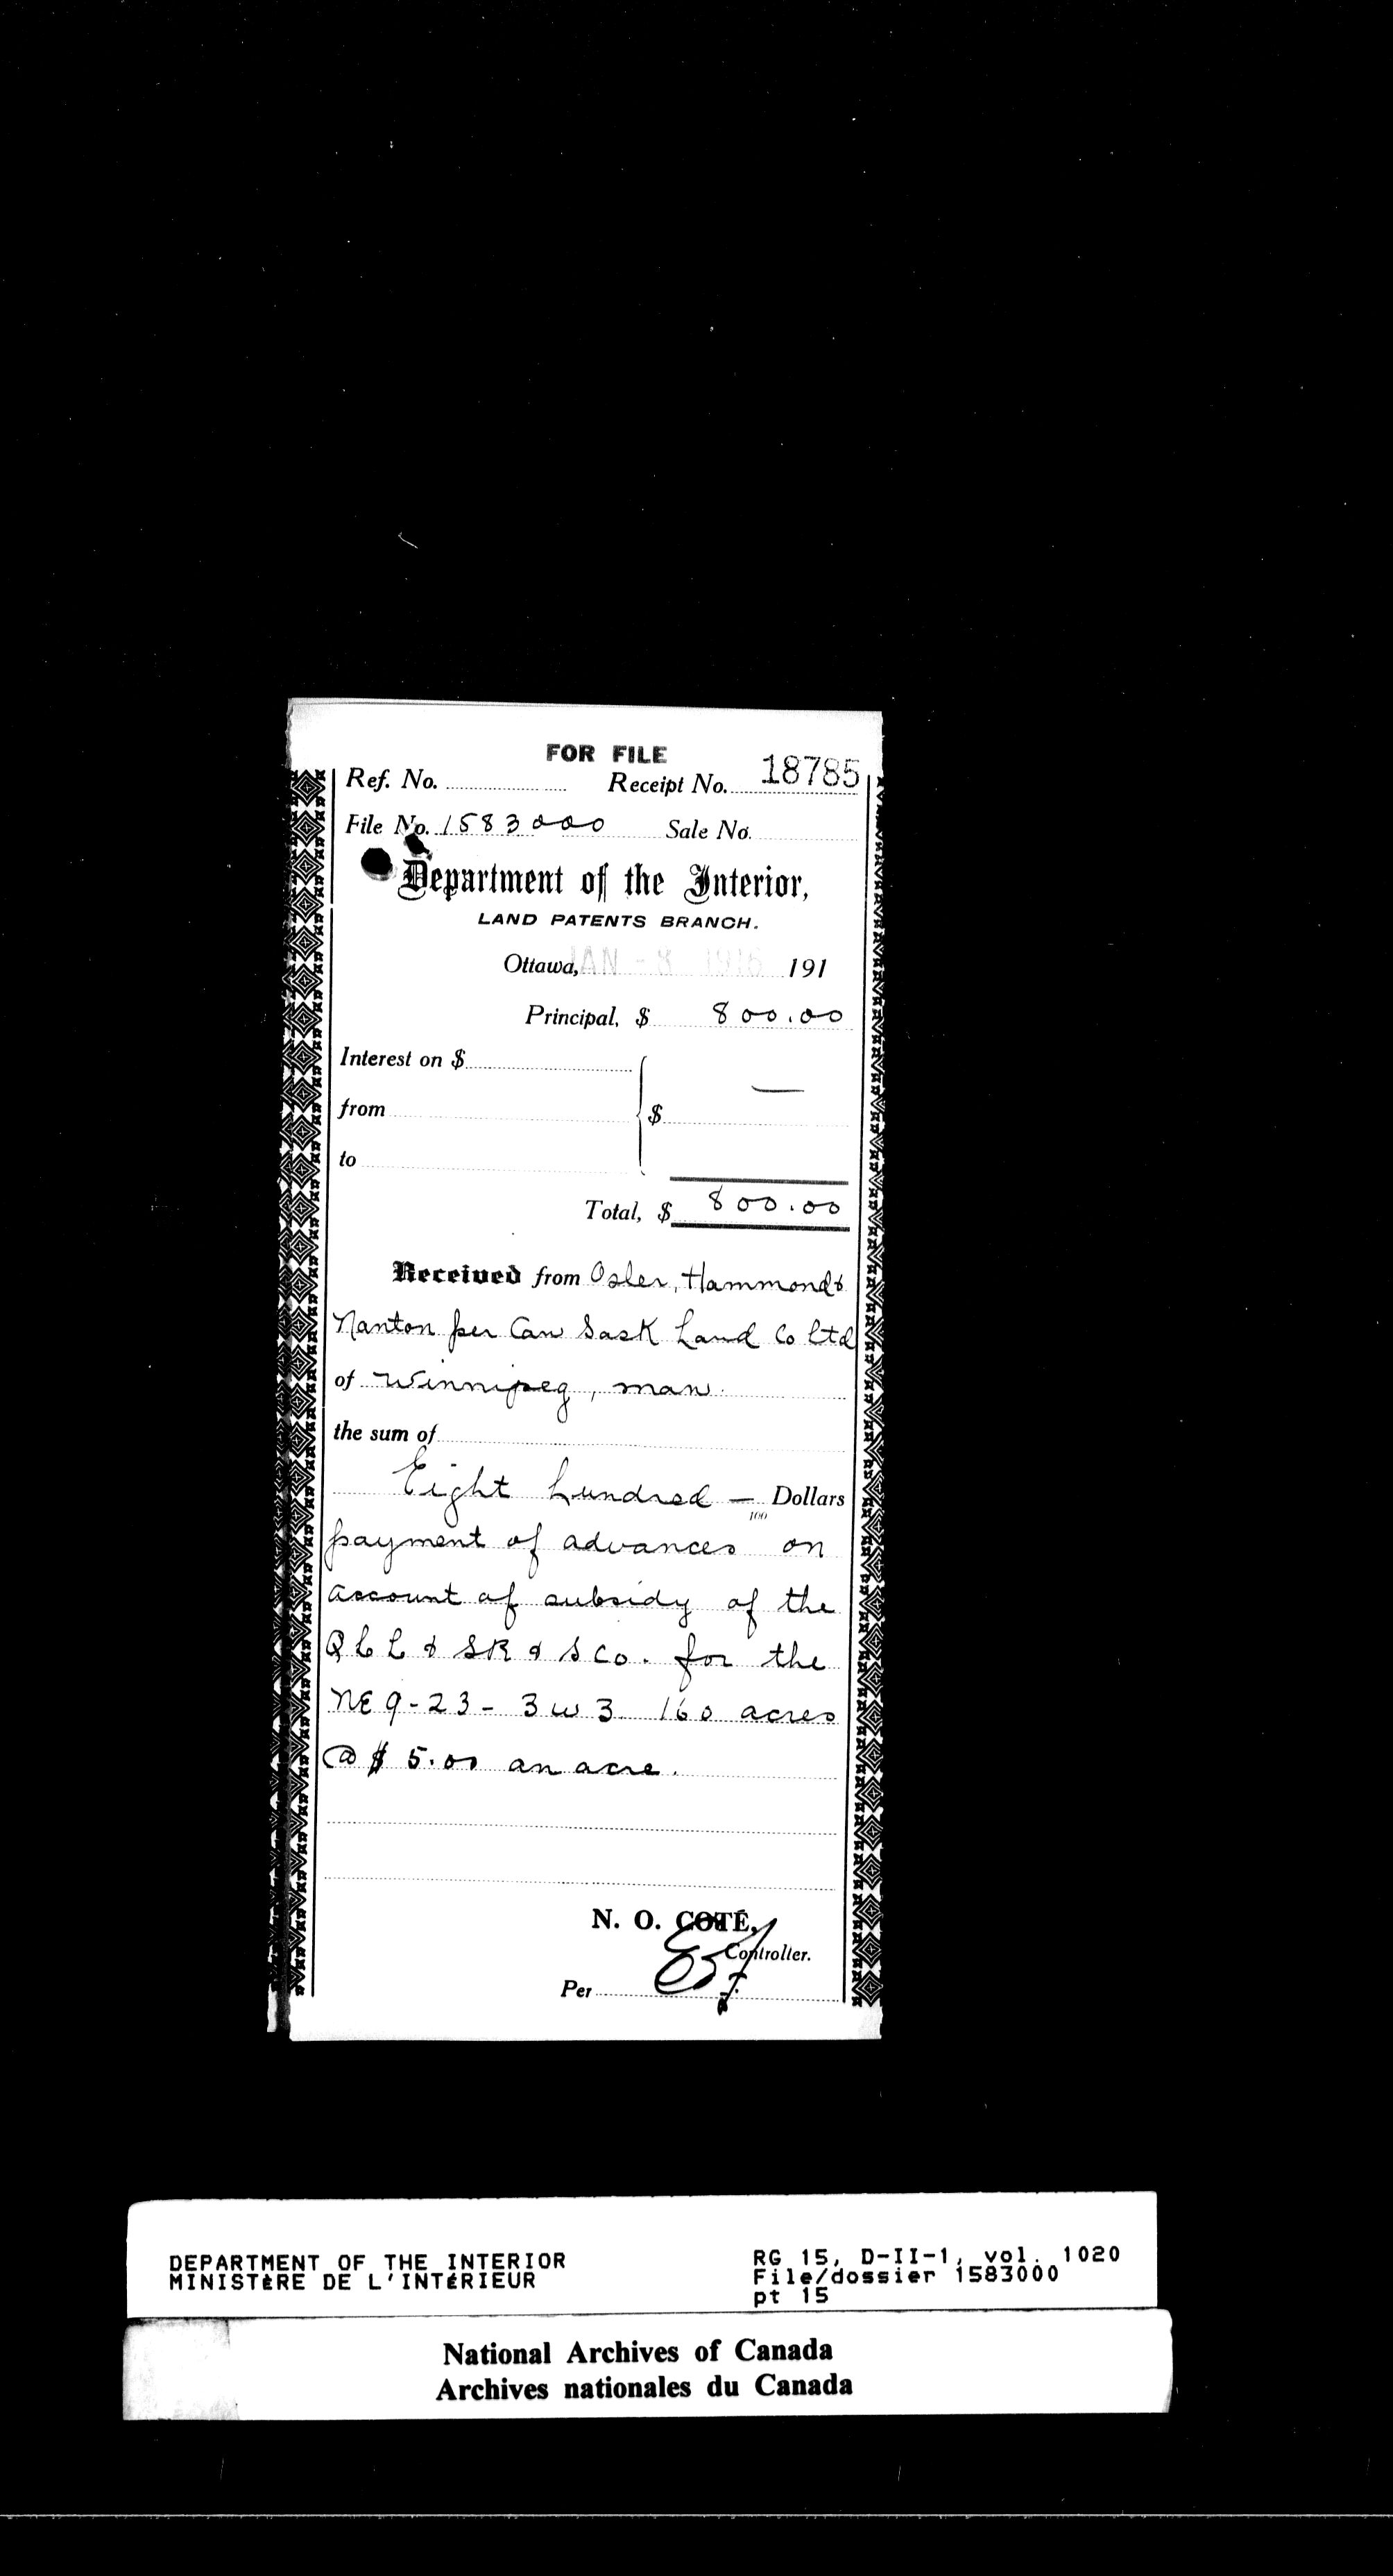 FOR FILE
Ref. No. Receipt No. 18785
File No. 1583000 Sale No.
Department of the Interior,
LAND PATENTS BRANCH.
Ottawa, JAN - 8 1916 191
Principal, $ 800.00
Interest on $
from $ —
to
Total, $ 800.00
Received from Osler, Hammond &
Nanton per Can Sask Land Co Ltd
of Winnipeg, Man.
the sum of
Eight hundred — Dollars
100
payment of advances on
account of subsidy of the
Q L L & S R & S Co. for the
NE 9-23-3 w 3 160 acres
@ $ 5.00 an acre.
N. O. COTÉ,
Controller.
Per
DEPARTMENT OF THE INTERIOR
MINISTÈRE DE L'INTÉRIEUR
RG 15, D-II-1, vol. 1020
File/dossier 1583000
pt 15
National Archives of Canada
Archives nationales du Canada